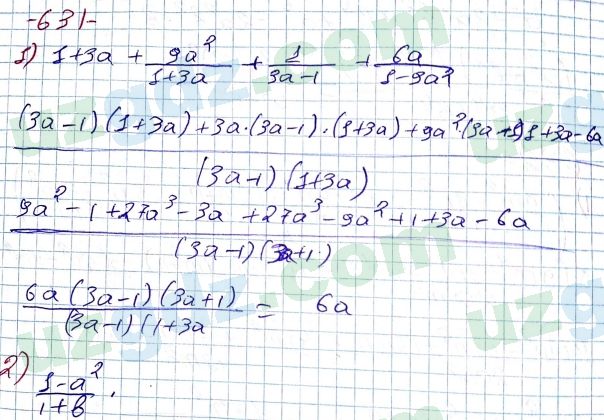 -631-
1) 1+3a + \frac{9a^2}{1+3a} + \frac{1}{3a-1} + \frac{6a}{1-9a^2}
\frac{(3a-1)(1+3a)+3a·(3a-1)·(1+3a)+9a^2·(3a-1)1+3a-6a}{(3a-1)(1+3a)}
\frac{9a^2-1+27a^3-3a+27a^3-9a^2+1+3a-6a}{(3a-1)(3a+1)}
\frac{6a(3a-1)(3a+1)}{(3a-1)(1+3a} = 6a
2) \frac{1-a^2}{1+b}.
uzgdz.com